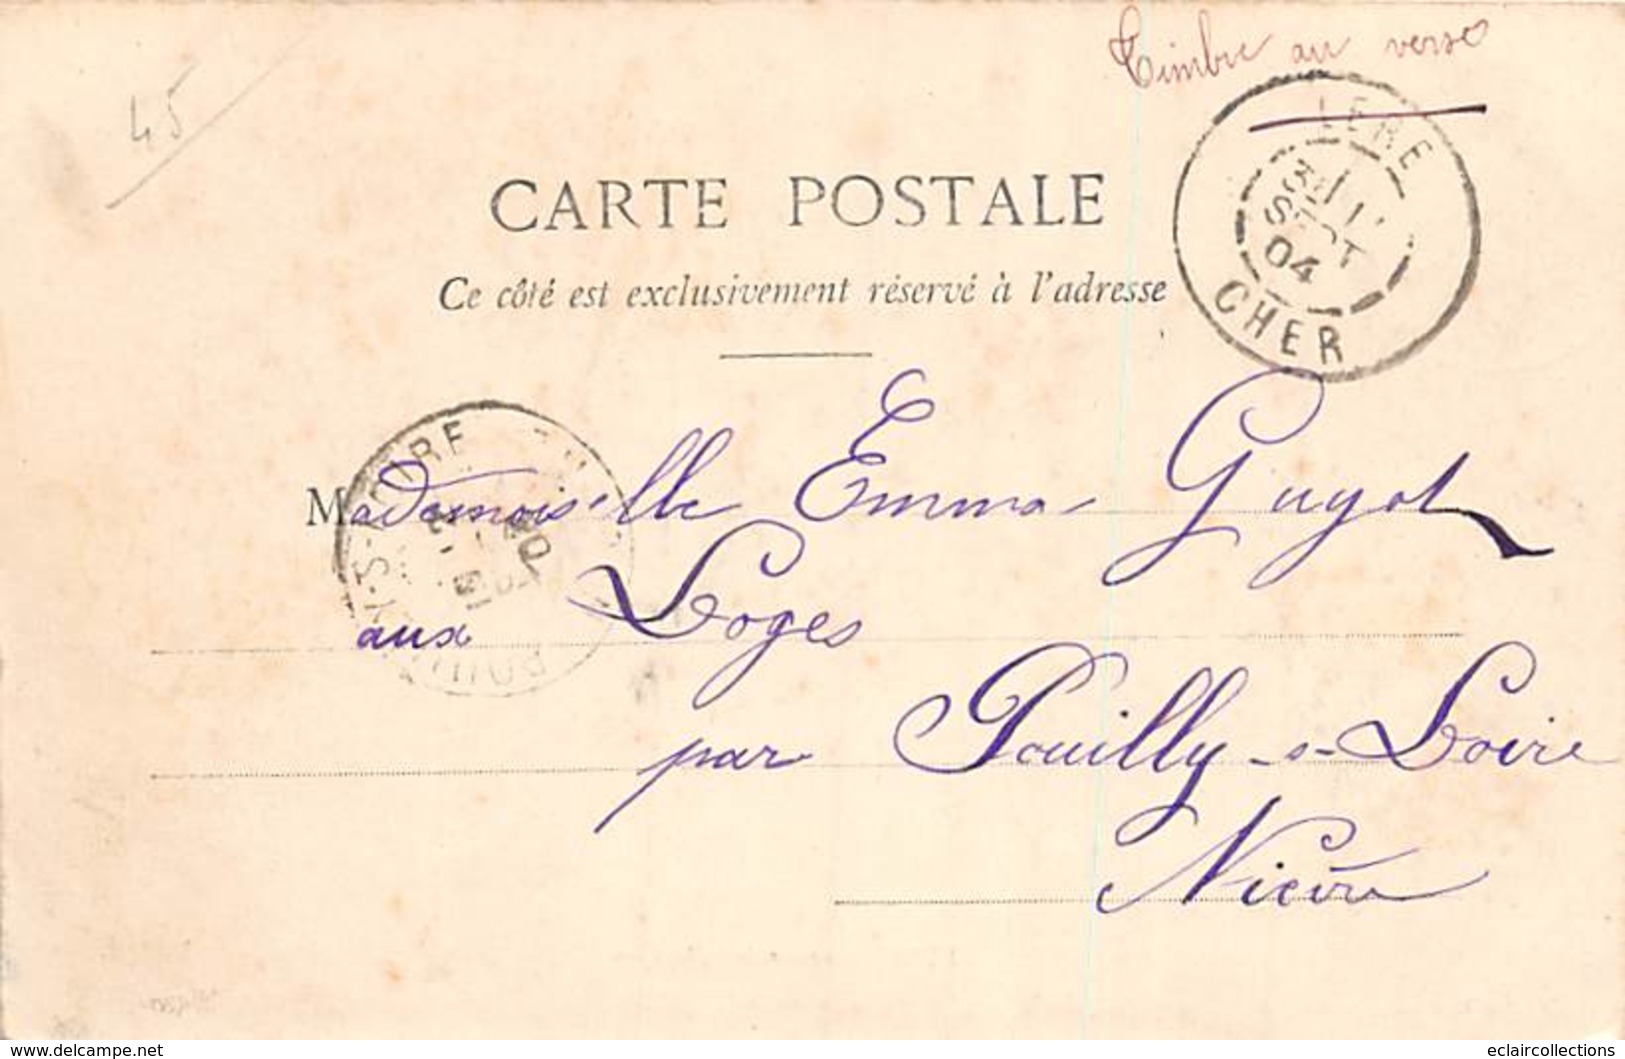 Timbre au verso
45
LERE
3
SEPT
04
CHER
CARTE POSTALE
Ce côté est exclusivement réservé à l'adresse
Mademoiselle Emma Guyot
aux Loges
par Pouilly-s-Loire
Nièvre
www.delcampe.net
eclaircollections